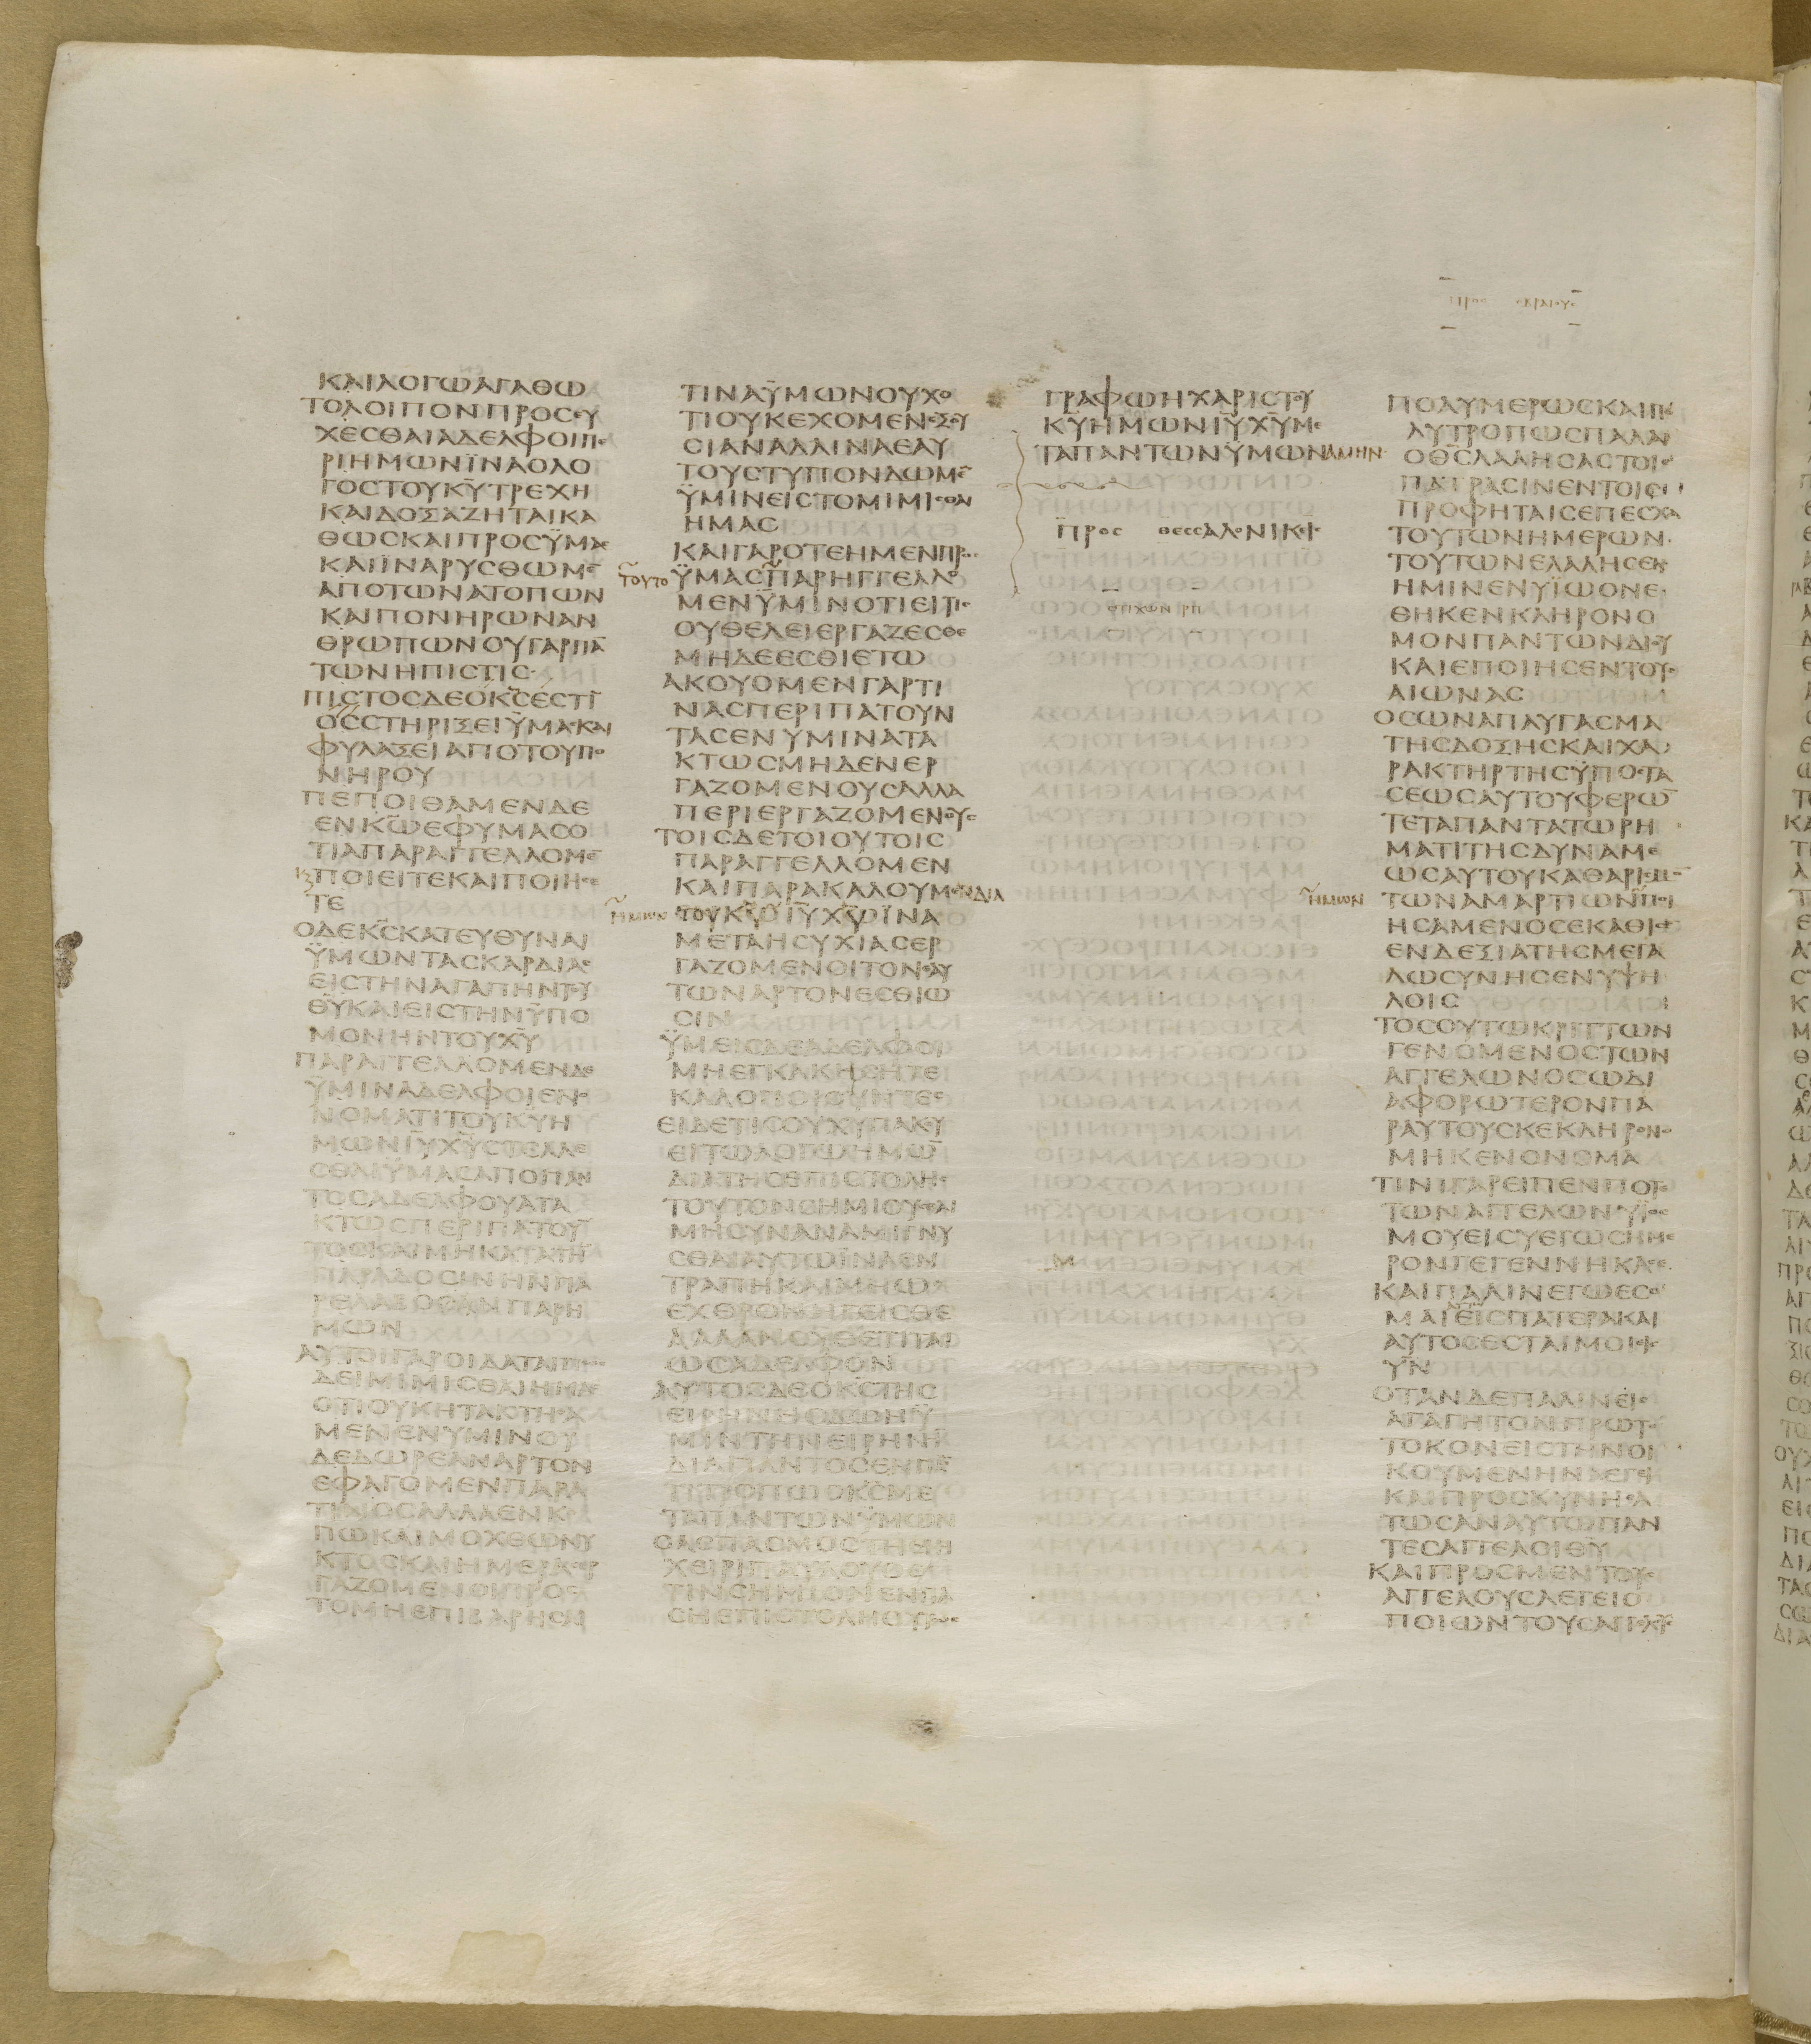 ΠΡΟΣ ΕΒΡΑΙΟΥΣ
ΚΑΙΛΟΓΩΑΓΑΘΩ
ΤΟΛΟΙΠΟΝΠΡΟCΕΥ
ΧΕCΘΑΙΑΔΕΛΦΟΙΠΕ
ΡΙΗΜΩΝΪΝΑΟΛΟ
ΓΟCΤΟΥΚΥΤΡΕΧΗ
ΚΑΙΔΟΞΑΖΗΤΑΙΚΑ
ΘΩCΚΑΙΠΡΟCΫΜΑC
ΚΑΙΪΝΑΡΥCΘΩΜΕ̅
ΑΠΟΤΩΝΑΤΟΠΩΝ
ΚΑΙΠΟΝΗΡΩΝΑΝ
ΘΡΩΠΩΝΟΥΓΑΡΠΑ̅
ΤΩΝΗΠΙCΤΙC
ΠΙCΤΟCΔΕΟΚ̅C̅ΕCΤΙ̅
ΟCCΤΗΡΙΞΕΙΫΜΑCΚΑΙ
ΦΥΛΑΞΕΙΑΠΟΤΟΥΠΟ
ΝΗΡΟΥ
ΠΕΠΟΙΘΑΜΕΝΔΕ
ΕΝΚ̅Ω̅ΕΦΥΜΑCΟ
ΤΙΑΠΑΡΑΓΓΕΛΛΟΜΕ̅
ΠΟΙΕΙΤΕΚΑΙΠΟΙΗCΕ
ΤΕ
ΟΔΕΚ̅C̅ΚΑΤΕΥΘΥΝΑΙ
ΫΜΩΝΤΑCΚΑΡΔΙΑC
ΕΙCΤΗΝΑΓΑΠΗΝΤΟΥ
Θ̅Υ̅ΚΑΙΕΙCΤΗΝΫΠΟ
ΜΟΝΗΝΤΟΥΧ̅Υ̅
ΠΑΡΑΓΓΕΛΛΟΜΕΝΔΕ
ΫΜΙΝΑΔΕΛΦΟΙΕΝΟ
ΝΟΜΑΤΙΤΟΥΚ̅Υ̅Η
ΜΩΝΙ̅Υ̅Χ̅Υ̅CΤΕΛΛΕ
CΘΑΙΫΜΑCΑΠΟΠΑΝ
ΤΟCΑΔΕΛΦΟΥΑΤΑ
ΚΤΩCΠΕΡΙΠΑΤΟΥ̅
ΤΟCΚΑΙΜΗΚΑΤΑΤΗ̅
ΠΑΡΑΔΟCΙΝΗΝΠΑ
ΡΕΛΑΒΟCΑΝΠΑΡΗ
ΜΩΝ
ΑΥΤΟΙΓΑΡΟΙΔΑΤΑΙΠΩC
ΔΕΙΜΙΜΙCΘΑΙΗΜΑC
ΟΤΙΟΥΚΗΤΑΚΤΗCΑ
ΜΕΝΕΝΥΜΙΝΟΥ
ΔΕΔΩΡΕΑΝΑΡΤΟΝ
ΕΦΑΓΟΜΕΝΠΑΡΑ
ΤΙΝΟCΑΛΛΑΕΝΚΟ
ΠΩΚΑΙΜΟΧΘΩΝΥ
ΚΤΟCΚΑΙΗΜΕΡΑCΕΡ
ΓΑΖΟΜΕΝΟΙΠΡΟC
ΤΟΜΗΕΠΙΒΑΡΗCΑΙ
ΤΙΝΑΫΜΩΝΟΥΧΟ
ΤΙΟΥΚΕΧΟΜΕΝΕΞΟΥ
CΙΑΝΑΛΛΙΝΑΕΑΥ
ΤΟΥCΤΥΠΟΝΔΩΜΕ̅
ΫΜΙΝΕΙCΤΟΜΙΜΙCΘΑΙ
ΗΜΑC
ΚΑΙΓΑΡΟΤΕΗΜΕΝΠΡΟC
ΤΟΥΤΟ
ΫΜΑCΠΑΡΗΓΓΕΛΛΟ
ΜΕΝΫΜΙΝΟΤΙΕΙΤΙC
ΟΥΘΕΛΕΙΕΡΓΑΖΕCΘΕ
ΜΗΔΕΕCΘΙΕΤΩ
ΑΚΟΥΟΜΕΝΓΑΡΤΙ
ΝΑCΠΕΡΙΠΑΤΟΥΝ
ΤΑCΕΝΥΜΙΝΑΤΑ
ΚΤΩCΜΗΔΕΝΕΡ
ΓΑΖΟΜΕΝΟΥCΑΛΛΑ
ΠΕΡΙΕΡΓΑΖΟΜΕΝΟΥC
ΤΟΙCΔΕΤΟΙΟΥΤΟΙC
ΠΑΡΑΓΓΕΛΛΟΜΕΝ
ΚΑΙΠΑΡΑΚΑΛΟΥΜΕΝΔΙΑ
ΗΜΩΝ
ΤΟΥΚ̅Υ̅Ι̅Υ̅Χ̅Υ̅ΪΝΑ
ΜΕΤΑΗCΥΧΙΑCΕΡ
ΓΑΖΟΜΕΝΟΙΤΟΝΕΑΥ
ΤΩΝΑΡΤΟΝΕCΘΙΩ
CΙΝ
ΫΜΕΙCΔΕΑΔΕΛΦΟΙ
ΜΗΕΓΚΑΚΗCΗΤΕ
ΚΑΛΟΠΟΙΟΥΝΤΕC
ΕΙΔΕΤΙCΟΥΧΥΠΑΚΟΥ
ΕΙΤΩΛΟΓΩΗΜΩ̅
ΔΙΑΤΗCΕΠΙCΤΟΛΗC
ΤΟΥΤΟΝCΗΜΙΟΥCΘΑΙ
ΜΗCΥΝΑΝΑΜΙΓΝΥ
CΘΑΙΑΥΤΩΪΝΑΕΝ
ΤΡΑΠΗΚΑΙΜΗΩC
ΕΧΘΡΟΝΗΓΕΙCΘΕ
ΑΛΛΑΝΟΥΘΕΤΙΤΑΙ
ΩCΑΔΕΛΦΟΝ
ΑΥΤΟCΔΕΟΚ̅C̅ΤΗC
ΕΙΡΗΝΗCΔΩΗΫ
ΜΙΝΤΗΝΕΙΡΗΝΗ̅
ΔΙΑΠΑΝΤΟCΕΝΠΑ̅
ΤΙΤΡΟΠΩΟΚ̅C̅ΜΕ
ΤΑΠΑΝΤΩΝΫΜΩΝ
ΟΑCΠΑCΜΟCΤΗΕΜΗ
ΧΕΙΡΙΠΑΥΛΟΥΟΕ
ΤΙΝCΗΜΙΟΜΕΝΠΑ
CΗΕΠΙCΤΟΛΗΟΥΤΩC
ΓΡΑΦΩΗΧΑΡΙCΤΟΥ
Κ̅Υ̅ΗΜΩΝΙ̅Υ̅Χ̅Υ̅ΜΕ
ΤΑΠΑΝΤΩΝΫΜΩΝΑΜΗΝ
ΠΡΟC ΘΕCCΑΛΟΝΙΚΕΙC
CΤΙΧΩΝ ΡΠ
ΠΟΛΥΜΕΡΩCΚΑΙΠΟ
ΛΥΤΡΟΠΩCΠΑΛΑΙ
ΟΘ̅C̅ΛΑΛΗCΑCΤΟΙC
ΠΑΤΡΑCΙΝΕΝΤΟΙC
ΠΡΟΦΗΤΑΙCΕΠΕCΧΑ
ΤΟΥΤΩΝΗΜΕΡΩΝ
ΤΟΥΤΩΝΕΛΑΛΗCΕΝ
ΗΜΙΝΕΝΥΪΩΟΝΕ
ΘΗΚΕΝΚΛΗΡΟΝΟ
ΜΟΝΠΑΝΤΩΝΔΙΟΥ
ΚΑΙΕΠΟΙΗCΕΝΤΟΥC
ΑΙΩΝΑC
ΟCΩΝΑΠΑΥΓΑCΜΑ
ΤΗCΔΟΞΗCΚΑΙΧΑ
ΡΑΚΤΗΡΤΗCΫΠΟCΤΑ
CΕΩCΑΥΤΟΥΦΕΡΩ̅
ΤΕΤΑΠΑΝΤΑΤΩΡΗ
ΜΑΤΙΤΗCΔΥΝΑΜΕ
ΩCΑΥΤΟΥΚΑΘΑΡΙCΜΟ̅
ΗΜΩΝ
ΤΩΝΑΜΑΡΤΙΩΝΠΟΙ
ΗCΑΜΕΝΟCΕΚΑΘΙCΕ̅
ΕΝΔΕΞΙΑΤΗCΜΕΓΑ
ΛΩCΥΝΗCΕΝΥΨΗ
ΛΟΙC
ΤΟCΟΥΤΩΚΡΙΤΤΩΝ
ΓΕΝΟΜΕΝΟCΤΩΝ
ΑΓΓΕΛΩΝΟCΩΔΙ
ΑΦΟΡΩΤΕΡΟΝΠΑ
ΡΑΥΤΟΥCΚΕΚΛΗΡΟΝΟ
ΜΗΚΕΝΟΝΟΜΑ
ΤΙΝΙΓΑΡΕΙΠΕΝΠΟΤΕ
ΤΩΝΑΓΓΕΛΩΝΥΪΟC
ΜΟΥΕΙCΥΕΓΩCΗΜΕ
ΡΟΝΓΕΓΕΝΝΗΚΑCΕ
ΚΑΙΠΑΛΙΝΕΓΩΕCΟ
ΜΑΙΕΙCΠΑΤΕΡΑΚΑΙ
ΑΥΤΟCΕCΤΑΙΜΟΙΕΙC
Υ̅Ν̅
ΟΤΑΝΔΕΠΑΛΙΝΕΙC
ΑΓΑΓΗΤΟΝΠΡΩΤΟ
ΤΟΚΟΝΕΙCΤΗΝΟΙ
ΚΟΥΜΕΝΗΝΛΕΓΕΙ
ΚΑΙΠΡΟCΚΥΝΗCΑ
ΤΩCΑΝΑΥΤΩΠΑΝ
ΤΕCΑΓΓΕΛΟΙΘ̅Υ̅
ΚΑΙΠΡΟCΜΕΝΤΟΥC
ΑΓΓΕΛΟΥCΛΕΓΕΙΟ
ΠΟΙΩΝΤΟΥCΑΓΓΕΛΟΥC